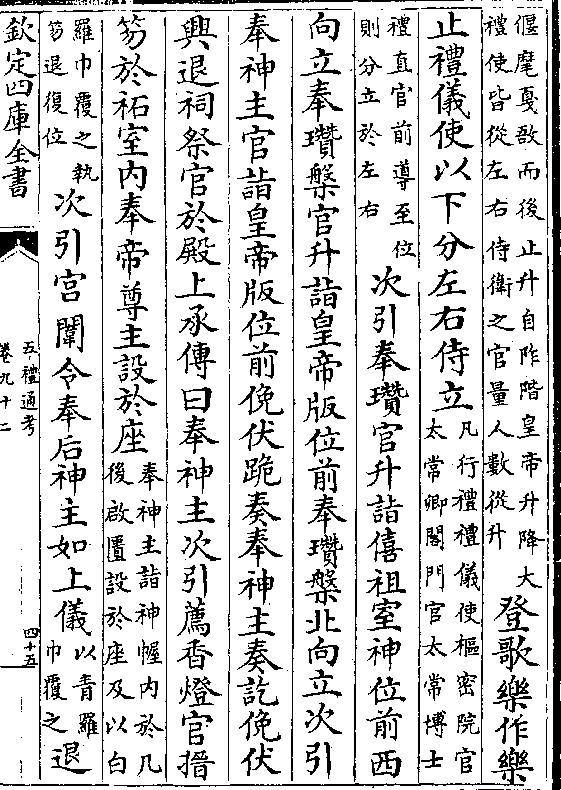 偃麾戛敔而後止升自阼階皇帝升降大
禮使皆從左右侍衛之官量人數從升
登歌樂作樂
止禮儀使以下分左右侍立
凡行禮禮儀使樞密院官
太常卿閤門官太常博士
禮直官前尊至位
則分立於左右
次引奉瓚官升詣僖祖室神位前西
向立奉瓚槃官升詣皇帝版位前奉瓚槃北向立次引
奉神主官詣皇帝版位前俛伏跪奏奉神主奏訖俛伏
興退祠祭官於殿上承傳曰奉神主次引薦香燈官搢
笏於祏室内奉帝尊主設於座
奉神主詣神幄内於几
後啟匱設於座及以白
羅巾覆之執
笏退復位
次引宮闈令奉后神主如上儀
以青羅
巾覆之
退
欽定四庫全書
五禮通考
卷九十二
四十五